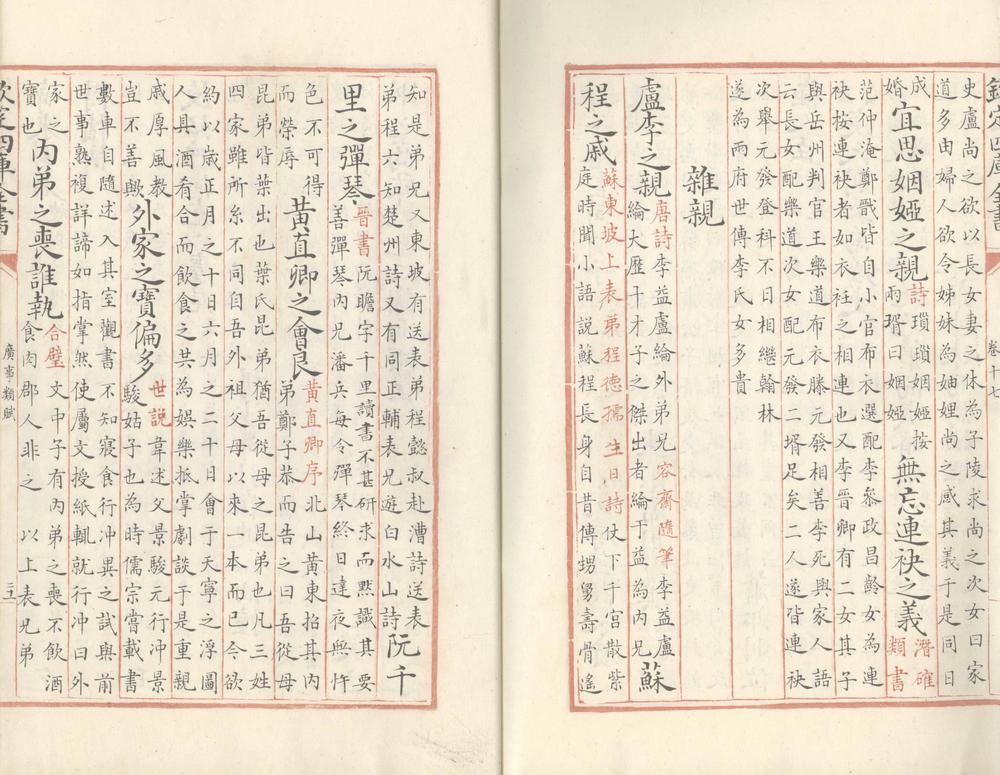 欽定四庫全書
卷十七
史盧尚之欲以長女妻之休為子陵求尚之次女曰家
道多由婦人欲令姊妹為妯娌尚之感其義于是同日
成婚
宜思姻婭之親
詩瑣瑣姻婭按
兩壻曰姻婭
無忘連袂之義
潛確
類書
范仲淹鄭戩皆自小官布衣選配李叅政昌齡女為連
袂按連袂者如衣袵之相連也又李晉卿有二女其子
與岳州判官王樂道布衣滕元發相善李死與家人語
云長女配樂道次女配元發二壻足矣二人遂皆連袂
次舉元發登科不日相繼翰林
遂為兩府世傳李氏女多貴
雜親
盧李之親
唐詩李益盧綸外弟兄容齋隨筆李益盧
綸大歷十才子之傑出者綸于益為内兄
蘇程之戚
蘇東坡上表弟程徳孺生日詩仗下千官散紫
庭時聞小語説蘇程長身自昔傳甥舅壽骨遙
知是弟兄又東坡有送表弟程懿叔赴漕詩送表
弟程六知楚州詩又有同正輔表兄遊白水山詩
阮千里之彈琴
晉書阮瞻字千里讀書不甚研求而黙識其要
善彈琴内兄潘兵毎令彈琴終日達夜無忤
色不可得
而榮辱
黄直卿之會良
黄直卿序北山黄東招其内
弟鄭子恭而告之曰吾從母
昆弟皆葉出也葉氏昆弟猶吾從母之昆弟也凡三姓
四家雖所糸不同自吾外祖父母以來一本而已今欲
約以歲正月之十日六月之二十日會于天寧之浮圖
人具酒肴合而飲食之共為娱樂抵掌劇談于是重親
戚厚風教
豈不善歟
外家之寶偏多
世説韋述父景駿元行沖景
駿姑子也為時儒宗嘗載書
數車自隨述入其室觀書不知寢食行沖異之試與前
世事熟複詳諦如指掌然使屬文授紙輒就行沖曰外
家之
寶也
内弟之喪誰執
合璧文中子有内弟之喪不飲酒
食肉郡人非之 以上表兄弟
廣事類賦
三二
欽定四庫全書